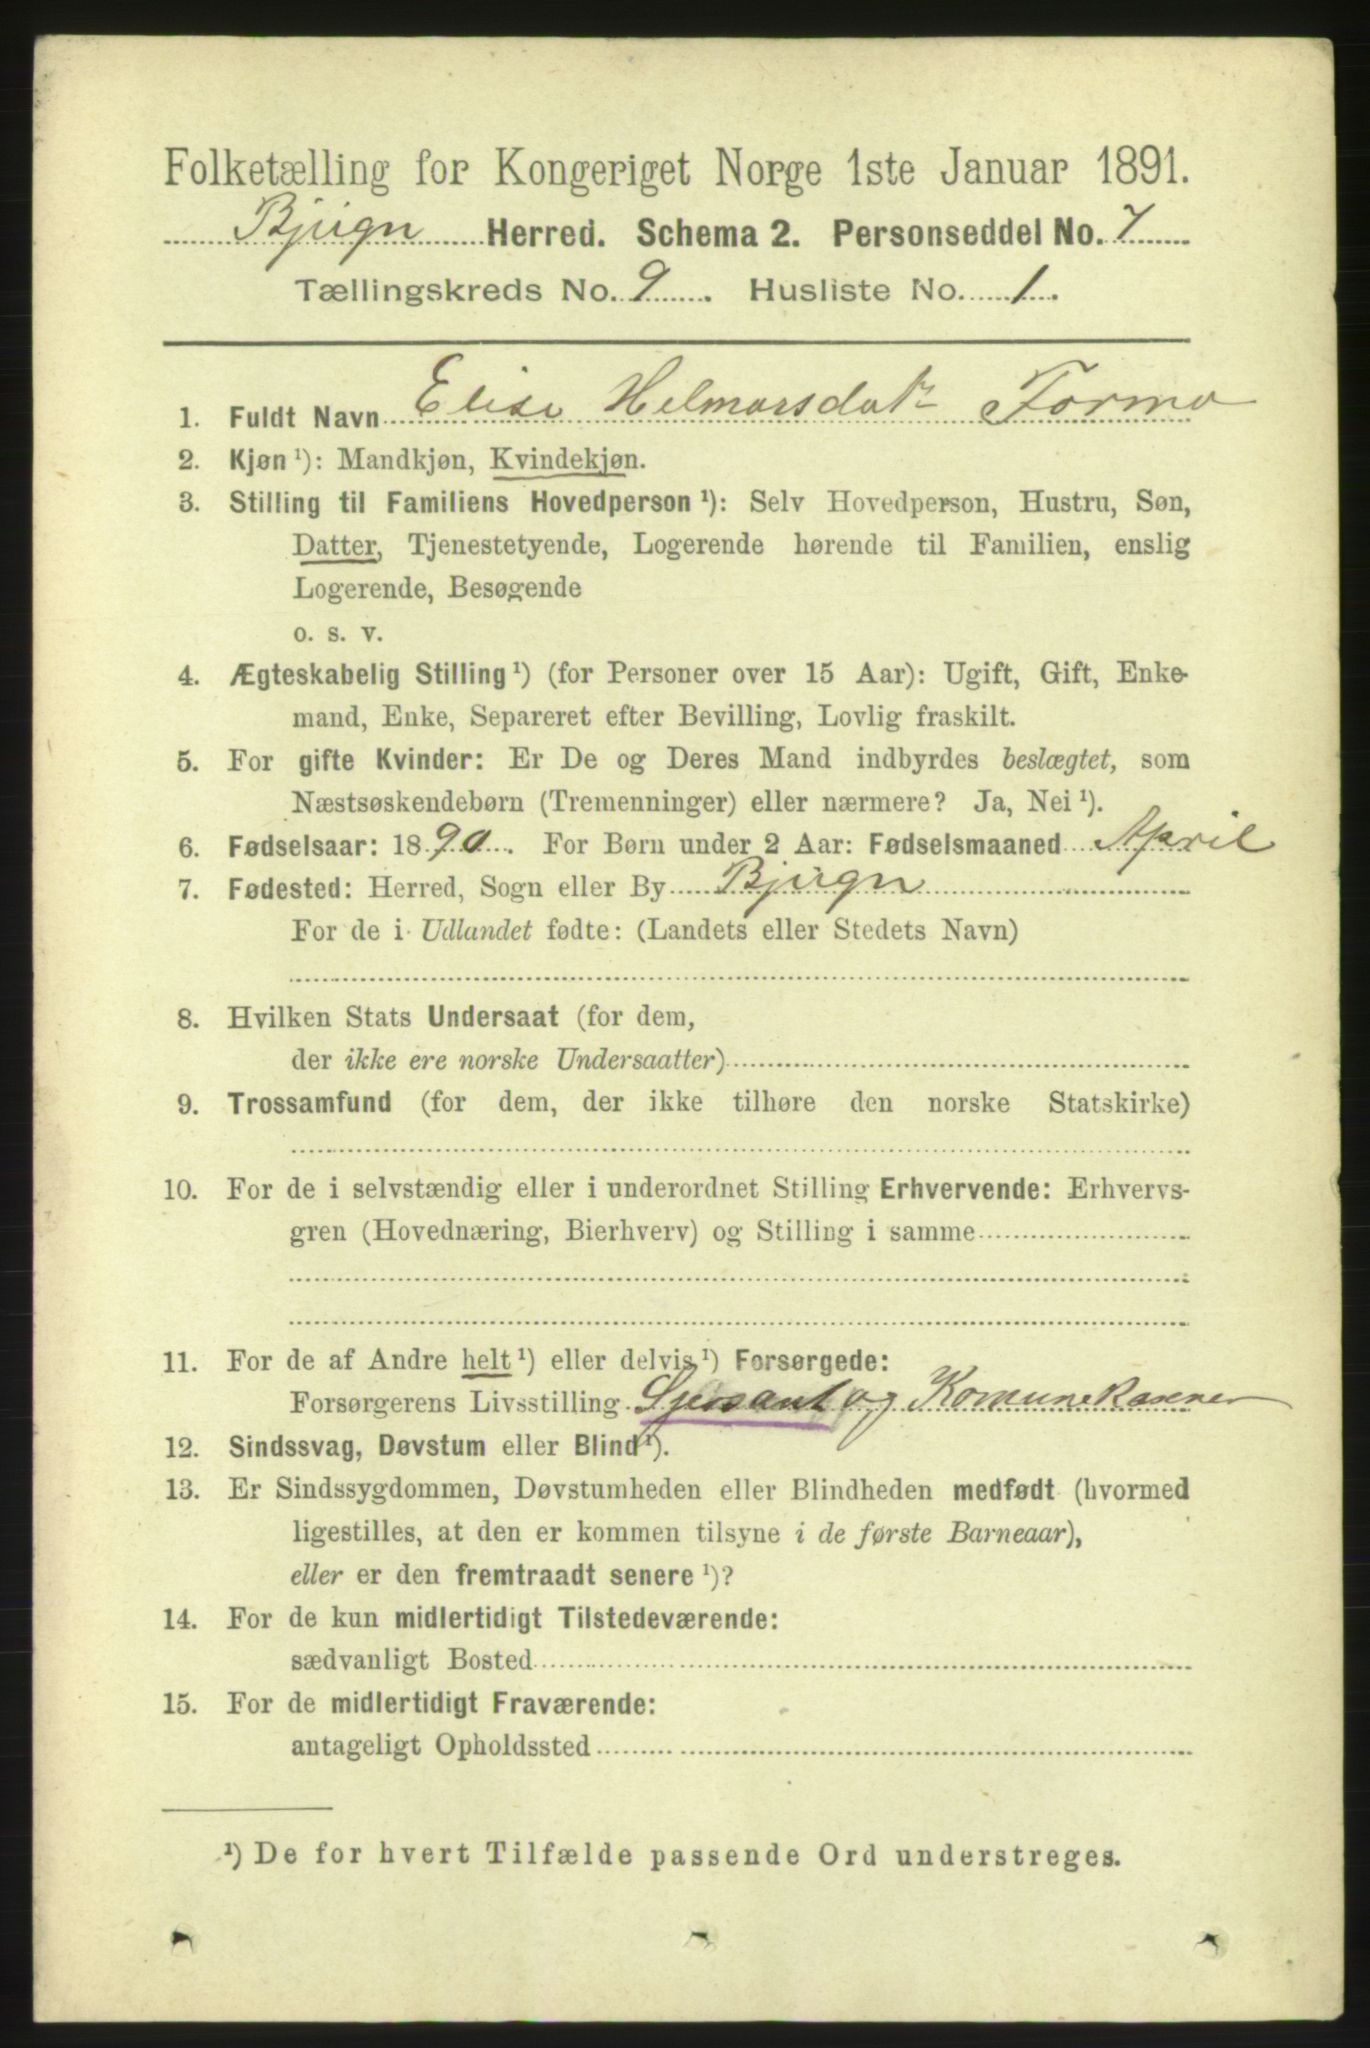 Folketælling for Kongeriget Norge 1ste Januar 1891.
Bjugn Herred. Schema 2. Personseddel No. 7
Tællingskreds No. 9. Husliste No. 1.
1. Fuldt Navn Elise Helmersdatr Formo
2. Kjøn ¹): Mandkjøn, Kvindekjøn.
3. Stilling til Familiens Hovedperson ¹): Selv Hovedperson, Hustru, Søn,
Datter, Tjenestetyende, Logerende hørende til Familien, enslig
Logerende, Besøgende
o. s. v.
4. Ægteskabelig Stilling ¹) (for Personer over 15 Aar): Ugift, Gift, Enke-
mand, Enke, Separeret efter Bevilling, Lovlig fraskilt.
5. For gifte Kvinder: Er De og Deres Mand indbyrdes beslægtet, som
Næstsøskendebørn (Tremenninger) eller nærmere? Ja, Nei ¹).
6. Fødselsaar: 1890. For Børn under 2 Aar: Fødselsmaaned April
7. Fødested: Herred, Sogn eller By Bjugn
For de i Udlandet fødte: (Landets eller Stedets Navn)
8. Hvilken Stats Undersaat (for dem,
der ikke ere norske Undersaatter)
9. Trossamfund (for dem, der ikke tilhøre den norske Statskirke)
10. For de i selvstændig eller i underordnet Stilling Erhvervende: Erhvervs-
gren (Hovednæring, Bierhverv) og Stilling i samme
11. For de af Andre helt ¹) eller delvis ¹) Forsørgede:
Forsørgerens Livsstilling og
12. Sindssvag, Døvstum eller Blind ¹).
13. Er Sindssygdommen, Døvstumheden eller Blindheden medfødt (hvormed
ligestilles, at den er kommen tilsyne i de første Barneaar),
eller er den fremtraadt senere ¹)?
14. For de kun midlertidigt Tilstedeværende:
sædvanligt Bosted
15. For de midlertidigt Fraværende:
antageligt Opholdssted
¹) De for hvert Tilfælde passende Ord understreges.